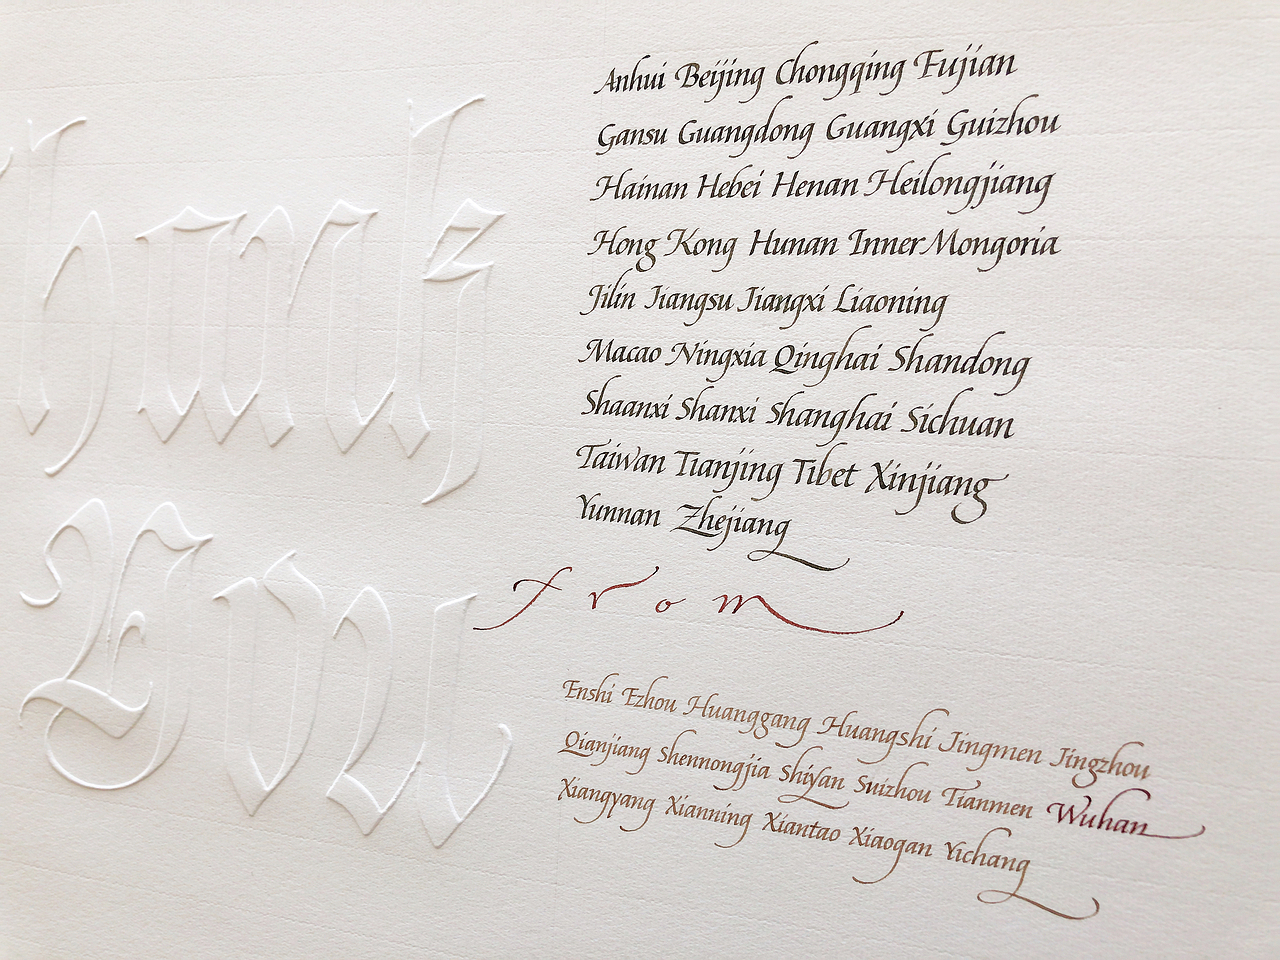 Thank
You
Anhui Beijing Chongqing Fujian
Gansu Guangdong Guangxi Guizhou
Hainan Hebei Henan Heilongjiang
Hong Kong Hunan Inner Mongoria
Jilin Jiangsu Jiangxi Liaoning
Macao Ningxia Qinghai Shandong
Shaanxi Shanxi Shanghai Sichuan
Taiwan Tianjing Tibet Xinjiang
Yunnan Zhejiang
from
Enshi Ezhou Huanggang Huangshi Jingmen Jingzhou
Qianjiang Shennongjia Shiyan Suizhou Tianmen Wuhan
Xiangyang Xianning Xiantao Xiaogan Yichang